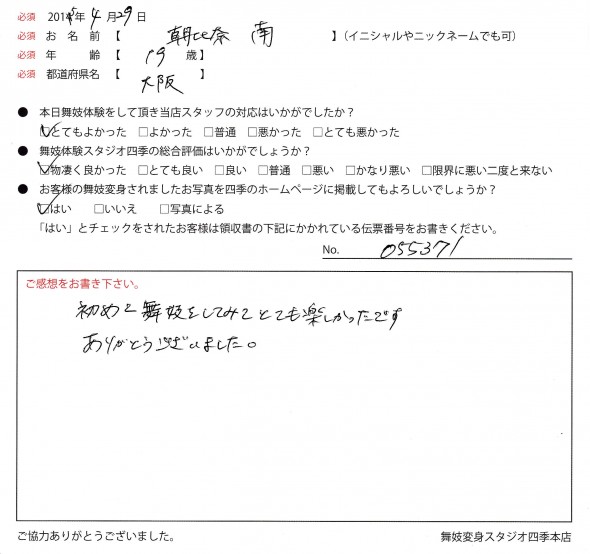 必須 2015年4月29日
必須 お名前【 朝比奈 南 】（イニシャルやニックネームでも可）
必須 年齢【 19 歳】
必須 都道府県名【 大阪 】
● 本日舞妓体験をして頂き当店スタッフの対応はいかがでしたか？
☑とてもよかった □よかった □普通 □悪かった □とても悪かった
● 舞妓体験スタジオ四季の総合評価はいかがでしょうか？
☑物凄く良かった □とても良い □良い □普通 □悪い □かなり悪い □限界に悪い二度と来ない
● お客様の舞妓変身されましたお写真を四季のホームページに掲載してもよろしいでしょうか？
☑はい □いいえ □写真による
「はい」とチェックをされたお客様は領収書の下記にかかれている伝票番号をお書きください。
No. 055371
ご感想をお書き下さい。
初めて舞妓をしてみてとても楽しかったです
ありがとうございました。
ご協力ありがとうございました。 舞妓変身スタジオ四季本店